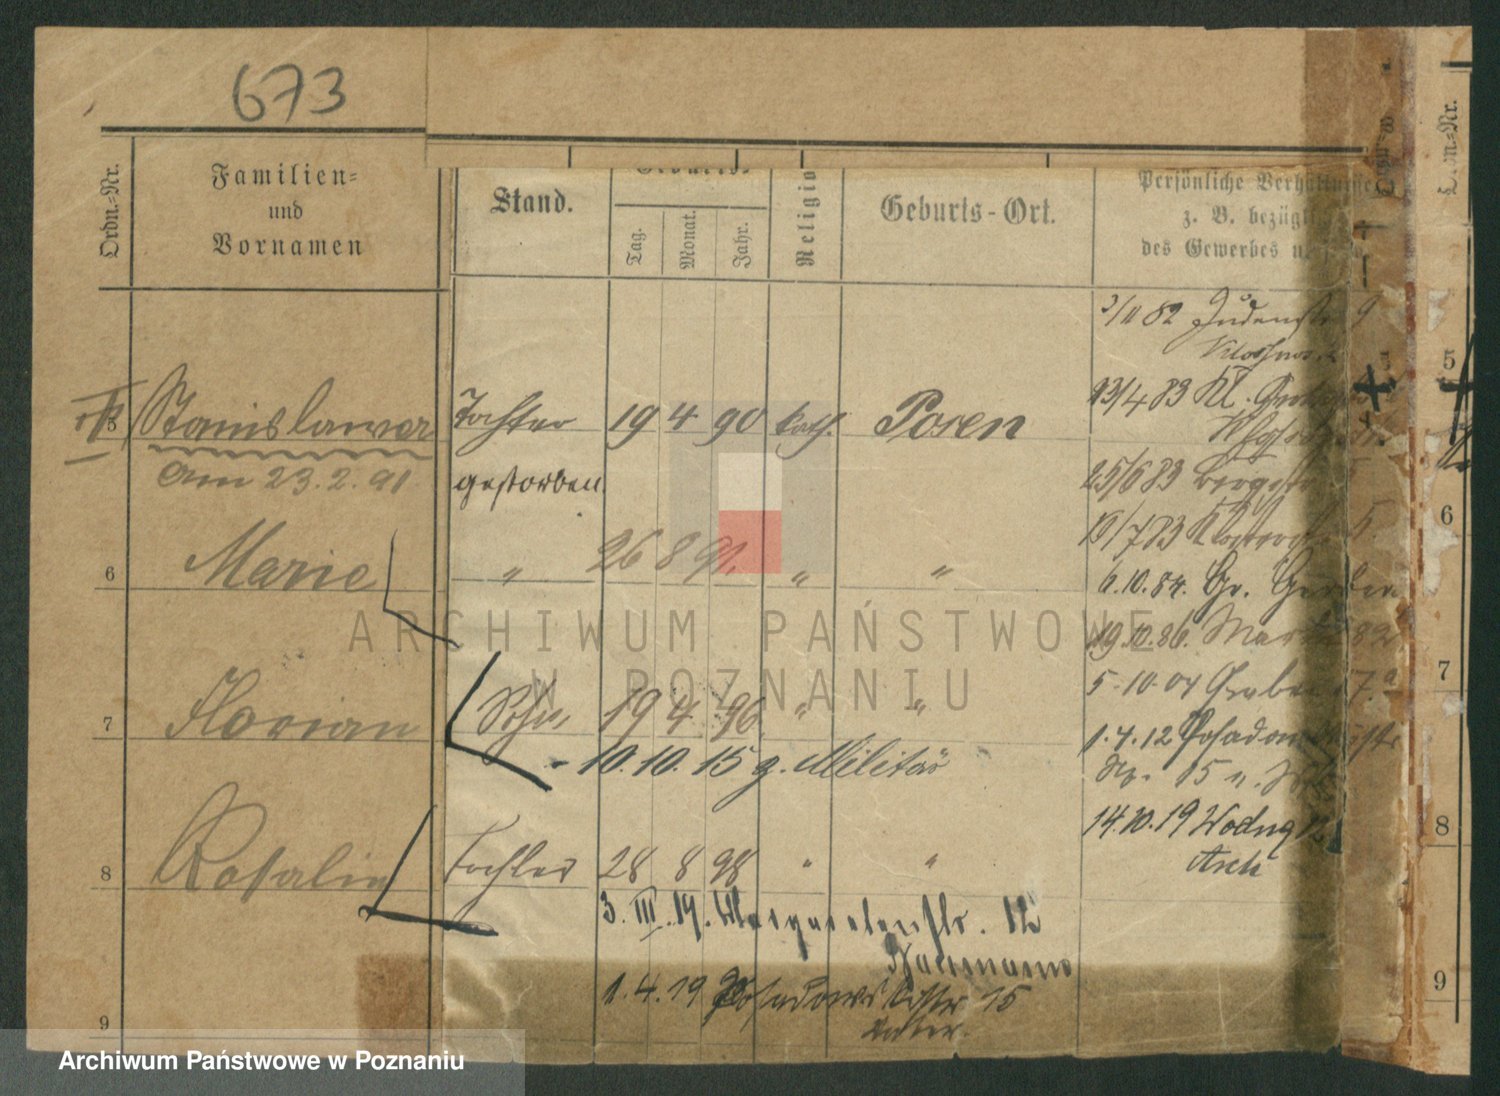 673
Ordn.=Nr.
Familien=
und
Vornamen
Stand.
Geburts=
Tag.
Monat.
Jahr.
Religio
Geburts-Ort.
Persönliche Verhältnisse
z. B. bezügl
des Gewerbes u.
Ordn.=Nr.
2/11 82 Judenstr 9
13/4 83 Kl.
5 Stanislawa Tochter 19 4 90 kath. Posen
am 23.2.91 gestorben.
25/6 83 Bergstr
6 Marie " 26 8 91. " "
19/7 83 Klosterstr 5.
6.10.84. Gr. Gerber
19.10.86. Mar 82
5.10.04 Graben 7a
7 Florian Sohn 19 4 96. " "
1.4.12 Posadowskistr
15
- 10.10.15 z. Militär
14.10.19 Wodna 12
Asch
8 Rosalie Tochter 28 8 98 " "
3.III.19. Margaretenstr. 12
1.4.19 Posadowskistr 15
Vater.
9
5
6
7
8
9
ARCHIWUM PAŃSTWOWE
W POZNANIU
Archiwum Państwowe w Poznaniu